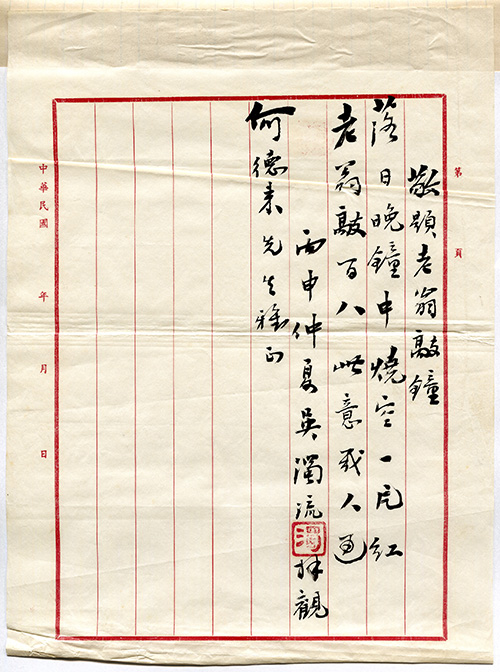 第 頁
敬題老翁敲鐘
落日晚鐘中燒空一片紅
老翁敲百八此意幾人通
丙申仲夏吳濁流拜觀
何德來先生雅正
中華民國 年 月 日